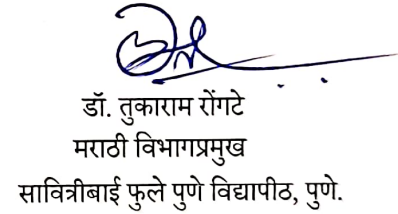 डॉ. तुकाराम रोंगटे
मराठी विभागप्रमुख
सावित्रीबाई फुले पुणे विद्यापीठ, पुणे.